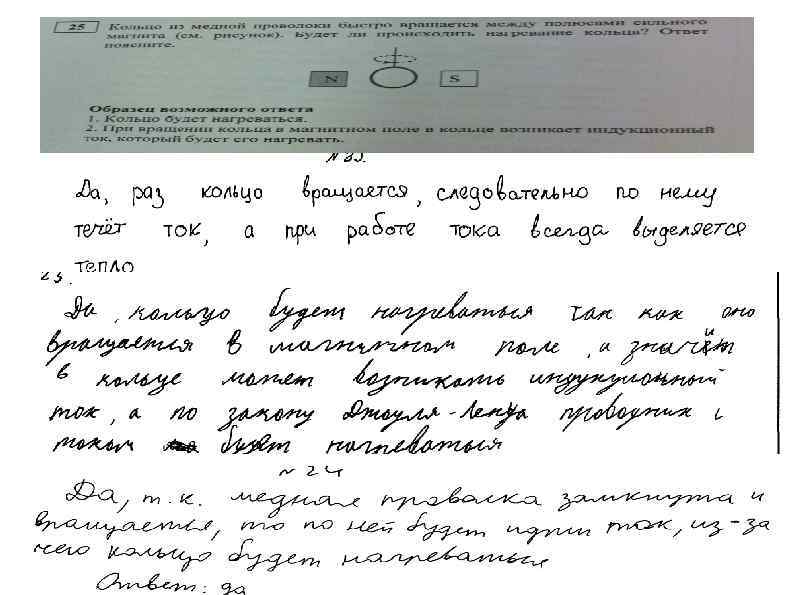 25 Кольцо из медной проволоки быстро вращается между полюсами сильного
магнита (см. рисунок). Будет ли происходить нагревание кольца? Ответ
поясните.
N S
Образец возможного ответа
1. Кольцо будет нагреваться.
2. При вращении кольца в магнитном поле в кольце возникает индукционный
ток, который будет его нагревать.
Да, раз кольцо вращается, следовательно по нему
течёт ток, а при работе тока всегда выделяется
тепло
Да, кольцо будет нагреваться так как оно
вращается в магнитном поле, а значит
в кольце может возникать индукционный
ток, а по закону Джоуля-Ленца проводник с
током будет нагреваться
№24
Да, т.к. медная проволка замкнута и
вращается, то по ней будет идти ток, из-за
чего кольцо будет нагреваться
Ответ: да